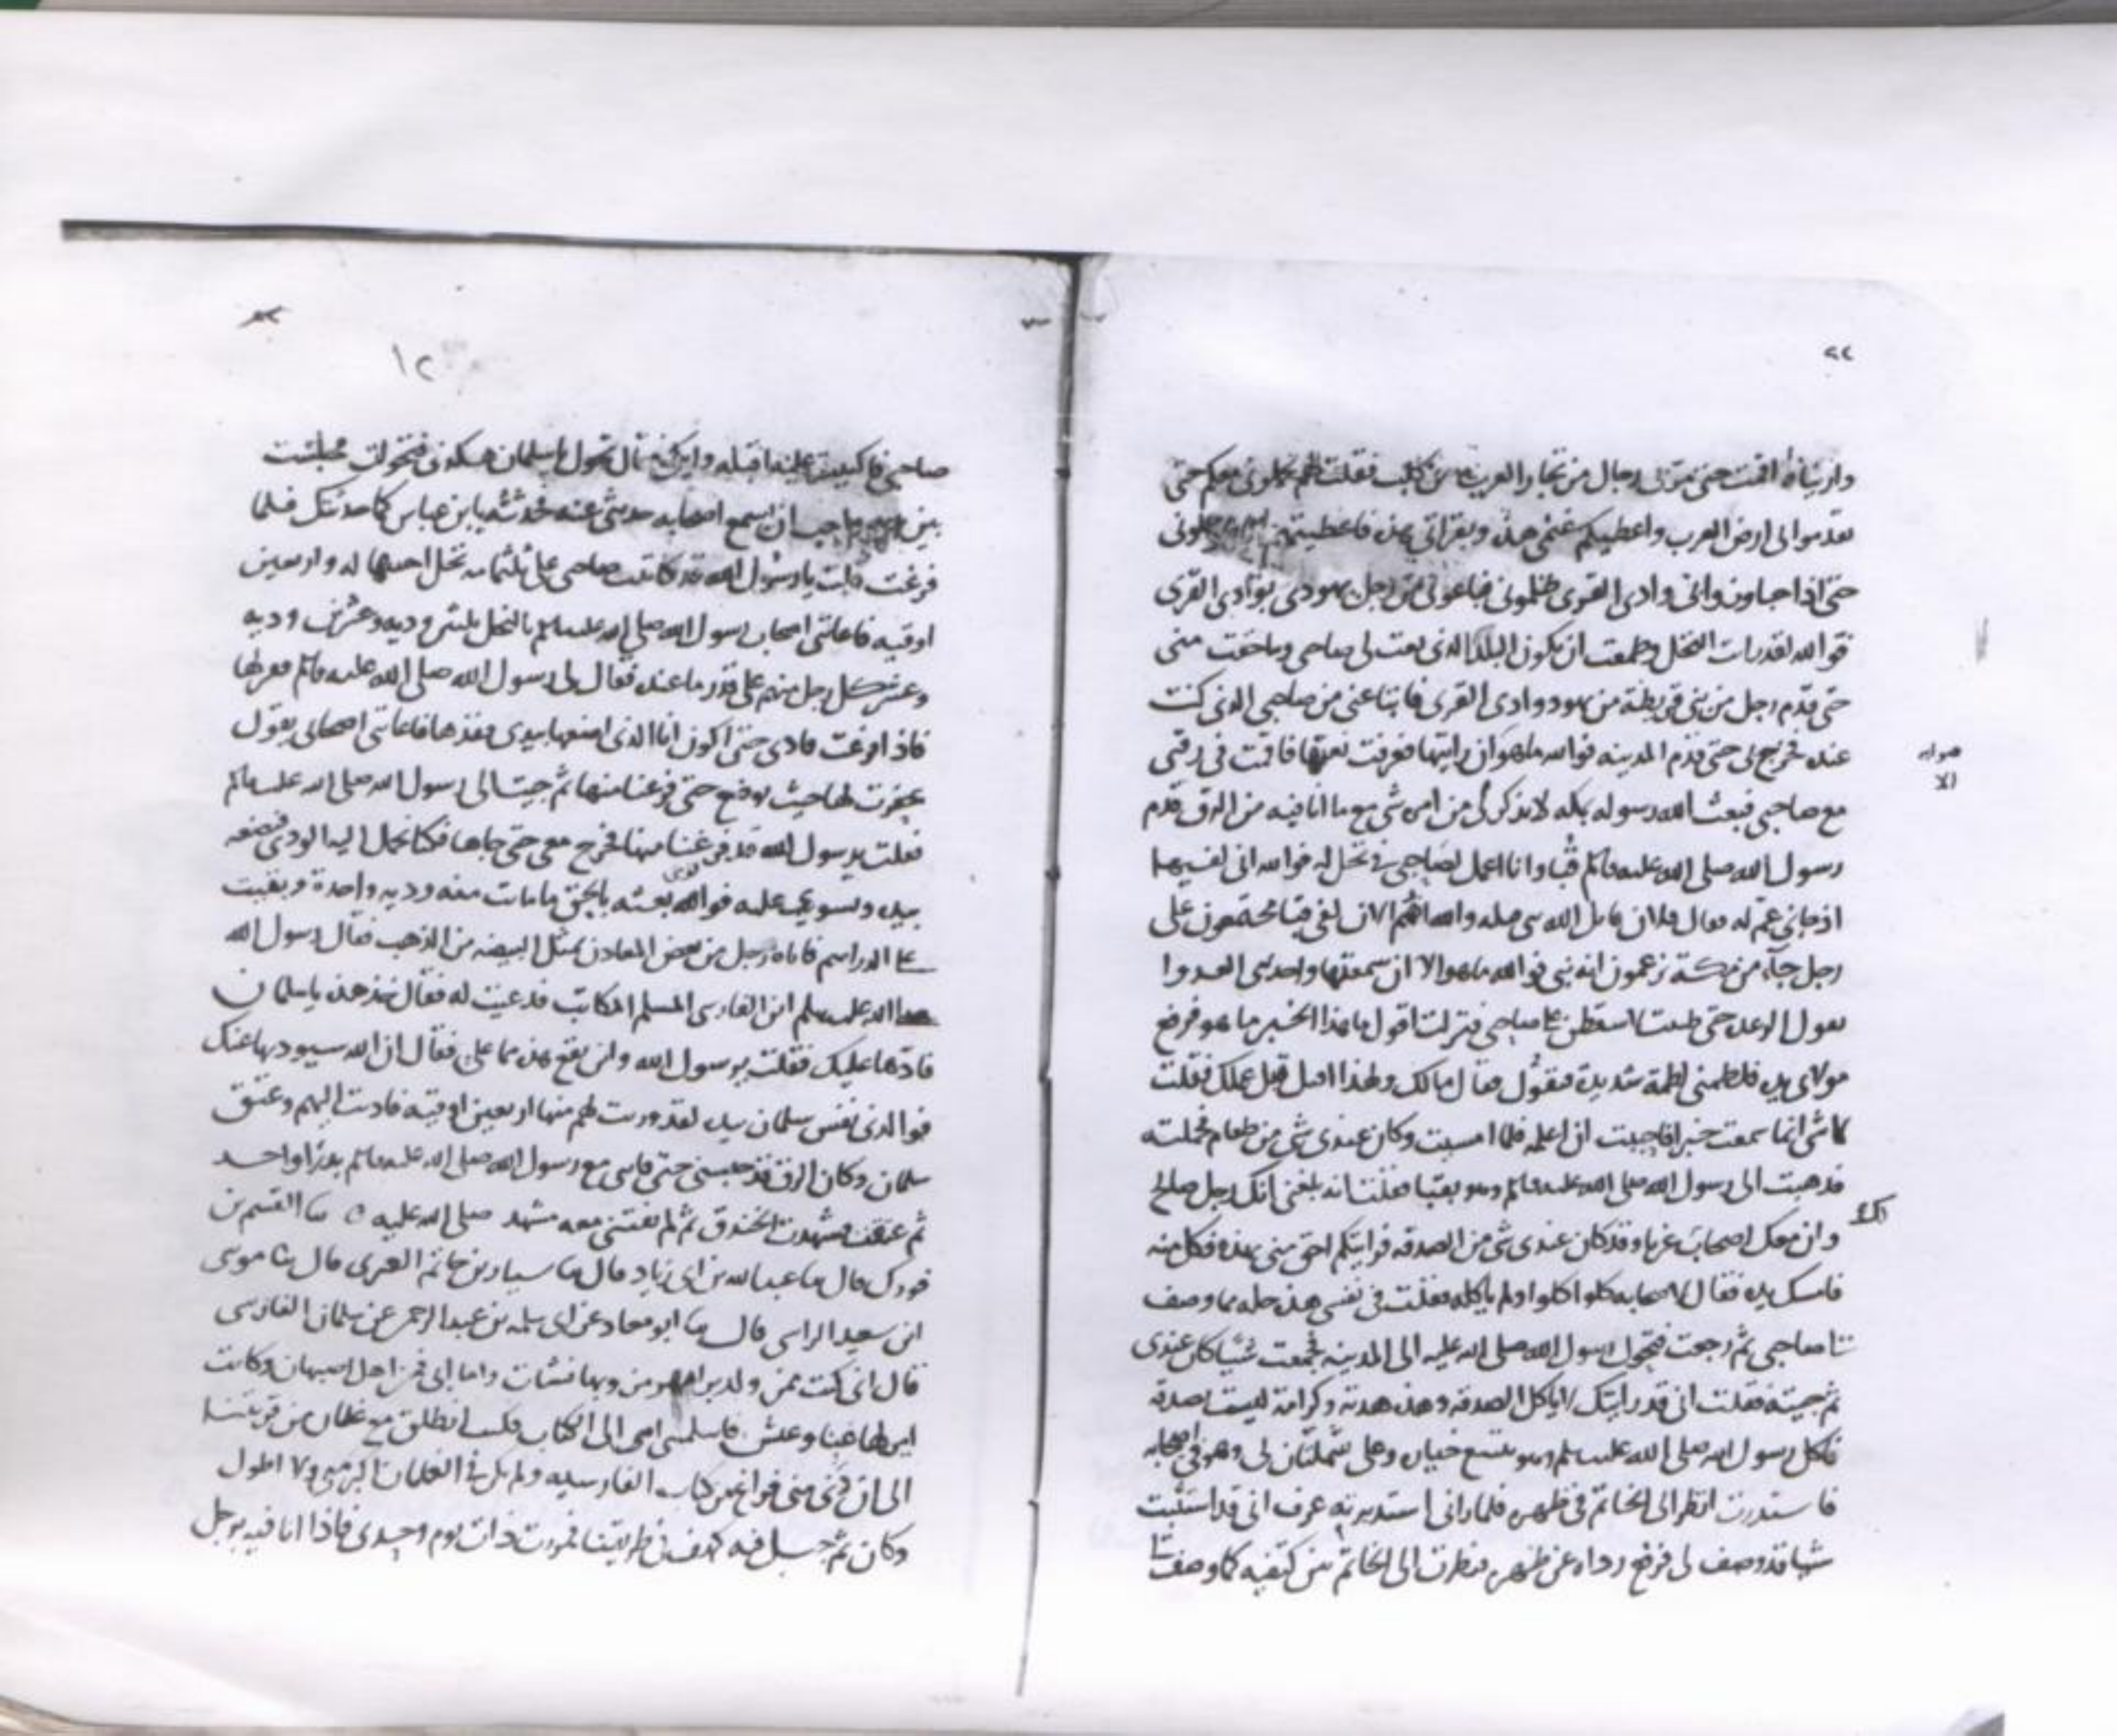 ٢٢
وارتياه اقمت حتى مر بى رجال من تجار العرب من كلب فقلت لهم تحملونى معكم حتى
تقدموا لى ارض العرب واعطيكم غنمى هذه وبقراتى هذه فاعطيتهم
حتى اذا جاوزوا اتى وادى القرى ظلمونى فباعونى من رجل يهودى بوادى القرى
فوالله لقد رايت النخل وطمعت ان يكون البلد الذى نعت لى صاحبى وماحقت منى
حتى قدم رجل من بنى قريظة من يهود وادى القرى فابتاعنى من صاحبى الذى كنت
عنده فخرج بى حتى قدم المدينه فوالله ماهو ان رايتها فعرفت نعتها فاقمت فى رقى
صوابه
الا
مع صاحبى فبعث الله رسوله بمكه لا يذكر لى من امره شى مع ما انا فيه من الرق قدم
رسول الله صلى الله عليه وسلم قبا وانا اعمل لصاحبى فى نخل له فوالله انى لفيها
اذ جا بن عم له فقال فلان قاتل الله بنى قيله والله انهم الان لفى قبا مجتمعون على
رجل جاء من مكة يزعمون انه نبى فوالله ماهو الا ان سمعتها
حتى ظننت لاسقطن على صاحبى فنزلت اقول ماهذا الخبر ما هو فرفع
مولاى يده فلطمنى لطمة شديدة فقال مالك ولهذا اقبل قبل عملك فقلت
لا شى انما سمعت خبرا فاحببت ان اعلمه فلما امسيت وكان عندى شى من طعام فحملته
فذهبت الى رسول الله صلى الله عليه وسلم وهو بقبا فقلت انه بلغنى انك رجل صالح
وان معك اصحاب غربا وقد كان عندى شى من الصدقه فرايتكم احق منى بهذه فكل منه
فامسك يده فقال لاصحابه كلوا اكلوا ولم ياكله فقلت فى نفسى هذه خله مما وصف
صاحبى ثم رجعت فتحول رسول الله صلى الله عليه الى المدينه فجمعت شيا كان عندى
ثم جيته فقلت انى قد رايتك لاياكل الصدقه وهذه هدية وكرامة ليست صدقه
فاكل رسول الله صلى الله عليه وسلم وهو يتبع وعلى شملتان لى وهو فى اصحابه
فاستدرت انظر الى الخاتم فى ظهره فلما رانى استدبرته عرف انى قد استثبت
شيا قد وصف لى فرفع رداه عن ظهره فنظرت الى الخاتم بين كتفيه كما وصف
١٢
صاحبى فاكببت عليه اقبله وابكى فقال تحول يا سلمان هكذا فتحولت فجلست
بين يديه واحب ان يسمع اصحابه حديثى عنه فحدثته يا بن عباس كما حدثتك فلما
فرغت قال يا رسول الله قد كاتبت صاحبى على ثلثمايه نخل احييها له واربعين
اوقيه فاعاننى اصحاب رسول الله صلى الله عليه وسلم بالنخل ثلثين وديه وعشرين وديه
وعشر كل رجل منهم على قدر ما عنده فقال لى رسول الله صلى الله عليه وسلم فقر لها
فاذا فرغت فاذنى حتى اكون انا الذى اضعها بيدى ففقرتها فاعاننى اصحابى يقول
حفرت لها حيث توضع حتى فرغنا منها ثم جيت الى رسول الله صلى الله عليه وسلم
فقلت يرسول الله قد فرغنا منها فخرج معى حتى جاها فكنا نحمل اليه الودى فيضعه
بيده ويسوى عليه فوالله الذى بعثه بالحق ما مات منه وديه واحدة وبقيت
على الدراهم فاتاه رجل من بعض المعادن بمثل البيضه من الذهب فقال رسول الله
صلى الله عليه وسلم اين الفارسى المسلم المكاتب فدعيت له فقال خذ هذه يا سلمان
فادها عليك فقلت يرسول الله واين تقع هذه مما على فقال ان الله سيوديها عنك
فوالذى نفس سلمان بيده لقد وزنت لهم منها اربعين اوقيه فاديت اليهم وعتق
سلمان وكان الرق قد حبسنى حتى فاتنى مع رسول الله صلى الله عليه وسلم بدرا واحد
ثم عتقت فشهدت الخندق ثم لم تفتنى معه مشهد صلى الله عليه ه نا القسم بن
فورك قال نا عبد الله بن ابى زياد قال نا سيار بن حاتم العنزى قال نا موسى
ابن سعيد الراسى قال نا ابو معاذ عن ابى سلمه بن عبد الرحمن عن سلمان الفارسى
قال انى كنت ممن ولد برامهرمز وبها نشات واما ابى فمن اهل اصبهان وكانت
امى لها غنا وعيش فاسلمتنى امى الى الكتاب فكنت انطلق مع غلمان من قريتنا
الى ان دنى منى فراغ من كتاب الفارسيه ولم يك فى الغلمان اكبر منى ولا اطول
وكان ثم جبل فيه كهف فى طريقنا فمررت ذات يوم وحدى فاذا انا فيه برجل